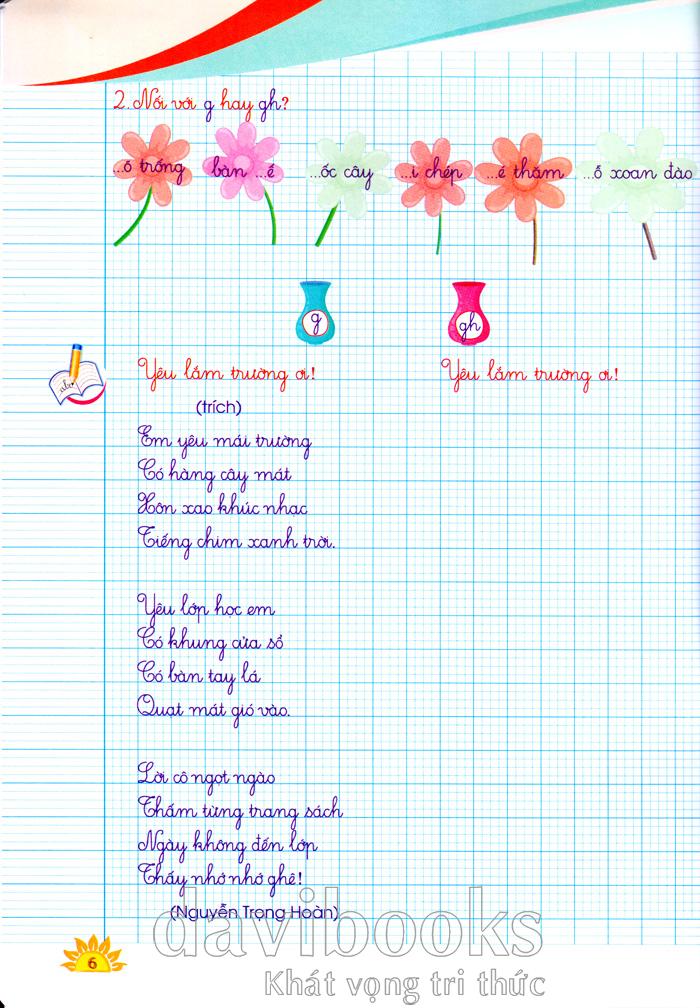 2. Nối với g hay gh?
...õ trống bàn ...ế ...ốc cây ...i chép ...é thăm ...ỗ xoan đào
g gh
abc
Yêu lắm trường ơi! Yêu lắm trường ơi!
(trích)
Em yêu mái trường
Có hàng cây mát
Xôn xao khúc nhạc
Tiếng chim xanh trời.
Yêu lớp học em
Có khung cửa sổ
Có bàn tay lá
Quạt mát gió vào.
Lời cô ngọt ngào
Thấm từng trang sách
Ngày không đến lớp
Thấy nhớ nhớ ghê!
(Nguyễn Trọng Hoàn)
davibooks
Khát vọng tri thức
6